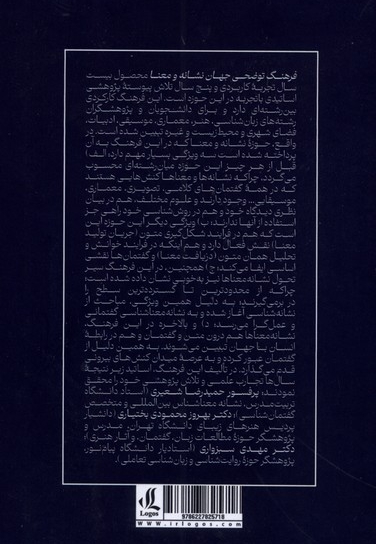 فرهنگ توضحی جهان نشانه و معنا محصول بیست
سال تجربهٔ کاربردی و پنج سال تلاش پیوستهٔ پژوهشی
اساتیدی باتجربه در این حوزه است. این فرهنگ کارکردی
بین‌رشته‌ای دارد و برای دانشجویان و پژوهشگران
رشته‌های زبان‌شناسی، هنر، معماری، موسیقی، ادبیات،
فضای شهری و محیط‌زیست و غیره تبیین شده است. در
واقع، حوزهٔ نشانه و معنا که در این فرهنگ به آن
پرداخته شده است سه ویژگی بسیار مهم دارد، الف)
قبل از هر چیز این حوزه میان‌رشته‌ای محسوب
می‌گردد، چراکه نشانه‌ها و معناها کنش‌هایی هستند
که در همهٔ گفتمان‌های کلامی، تصویری، معماری،
موسیقایی، وجود دارند و علوم مختلف، هم در بیان
نظری دیدگاه خود و هم در روش‌شناسی خود راهی جز
استفاده از آنها ندارند، ب) ویژگی دیگر این حوزه این
است که هم در فرایند شکل‌گیری متون (جریان تولید
معنا) نقش فعال دارد و هم اینکه در فرایند خوانش و
تحلیل همان متون (دریافت معنا) و گفتمان‌ها نقشی
اساسی ایفا می‌کند، ج) همچنین، در این فرهنگ سیر
تحول نشانه‌معناها نیز به‌خوبی نشان داده شده است،
چراکه از محدودترین تا گسترده‌ترین سطح را
در برمی‌گیرند، به دلیل همین ویژگی، مباحث از
نشانه‌شناسی آغاز شده و به نشانه‌معناشناسی گفتمانی
و عمل‌گرا می‌رسد، د) و بالاخره در این فرهنگ،
نشانه‌معناها هم درون متن و گفتمان و هم در رابطهٔ
انسان با جهان تبیین می‌گردند. به همین دلیل از
گفتمان عبور کرده و به عرصهٔ میدان کنش‌های بیرونی
قدم می‌گذارد. در تألیف این فرهنگ، اساتید زیر نتیجهٔ
سال‌ها تجارب علمی و تلاش پژوهشی خود را محقق
نمودند: پرفسور حمیدرضا شعیری (استاد دانشگاه
تربیت‌مدرس، نشانه معناشناس بین‌المللی و متخصص
گفتمان‌شناسی)، دکتر بهروز محمودی بختیاری (دانشیار
پردیس هنرهای زیبای دانشگاه تهران، مدرس و
پژوهشگر حوزهٔ مطالعات زبان، گفتمان، و آثار هنری)،
دکتر مهدی سبزواری (استادیار دانشگاه پیام‌نور،
پژوهشگر حوزهٔ روایت‌شناسی و زبان‌شناسی تعاملی).
Logos
9786227825718
www.irlogos.com